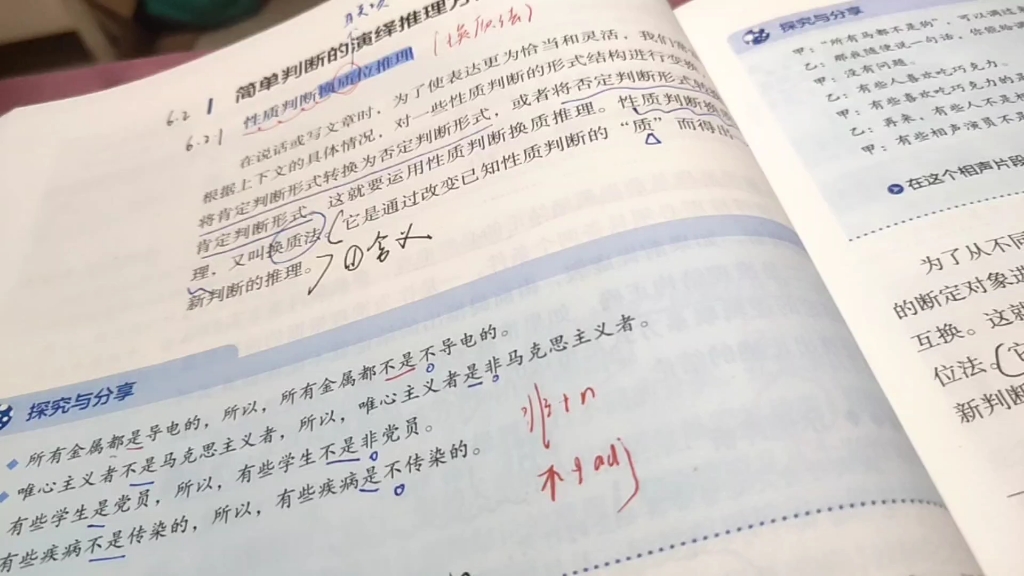 6.2
简单判断的演绎推理方
6.2.1
性质判断换质位推理
(换质法)
在说话或写文章时，为了使表达更为恰当和灵活，我们
根据上下文的具体情况，对一些性质判断的形式结构进行变换
将肯定判断形式转换为否定判断形式，或者将否定判断形式
肯定判断形式，这就要运用性质判断换质推理。性质判断换
理，又叫换质法，它是通过改变已知性质判断的“质”而得出
新判断的推理。
①含义
探究与分享
所有金属都是导电的，所以，所有金属都不是不导电的。
唯心主义者不是马克思主义者，所以，唯心主义者是非马克思主义者。
有些学生是党员，所以，有些学生不是非党员。
有些疾病不是传染的，所以，有些疾病是不传染的。
非+n
不+adj
探究与分享
甲：“所有马都不是狗”，可以
乙：那我随便说一句话，你能
甲：没有问题。
乙：有些人喜欢吃巧克力。
甲：有些喜欢吃巧克力的是
乙：再来，有些人不是
甲：有些相声演员不是
在这个相声片段
为了从不同
的断定对象进
互换。这就
位法。
新判断